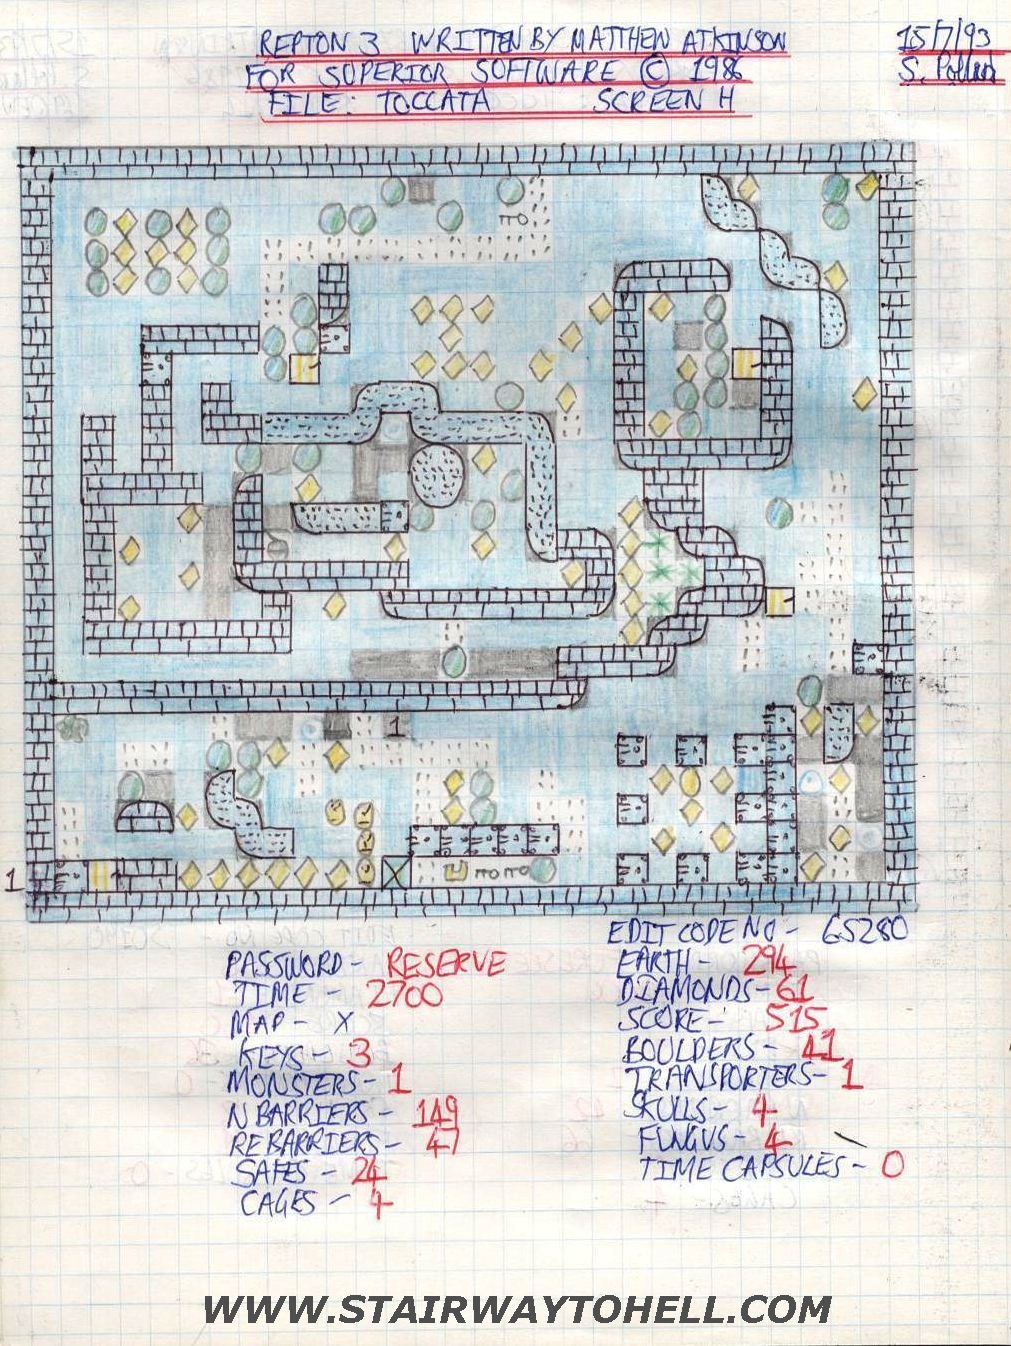 REPTON 3 WRITTEN BY MATTHEW ATKINSON
FOR SUPERIOR SOFTWARE © 1986
FILE: TOCCATA SCREEN H
15/7/93
S. Pollard
1
1
EDIT CODE NO - GS280
PASSWORD - RESERVE
TIME - 2700
MAP - X
KEYS - 3
MONSTERS - 1
N BARRIERS - 149
RE BARRIERS - 47
SAFES - 24
CAGES - 4
EARTH - 294
DIAMONDS - 61
SCORE - 515
BOULDERS - 41
TRANSPORTERS - 1
SKULLS - 4
FUNGUS - 4
TIME CAPSULES - 0
WWW.STAIRWAYTOHELL.COM